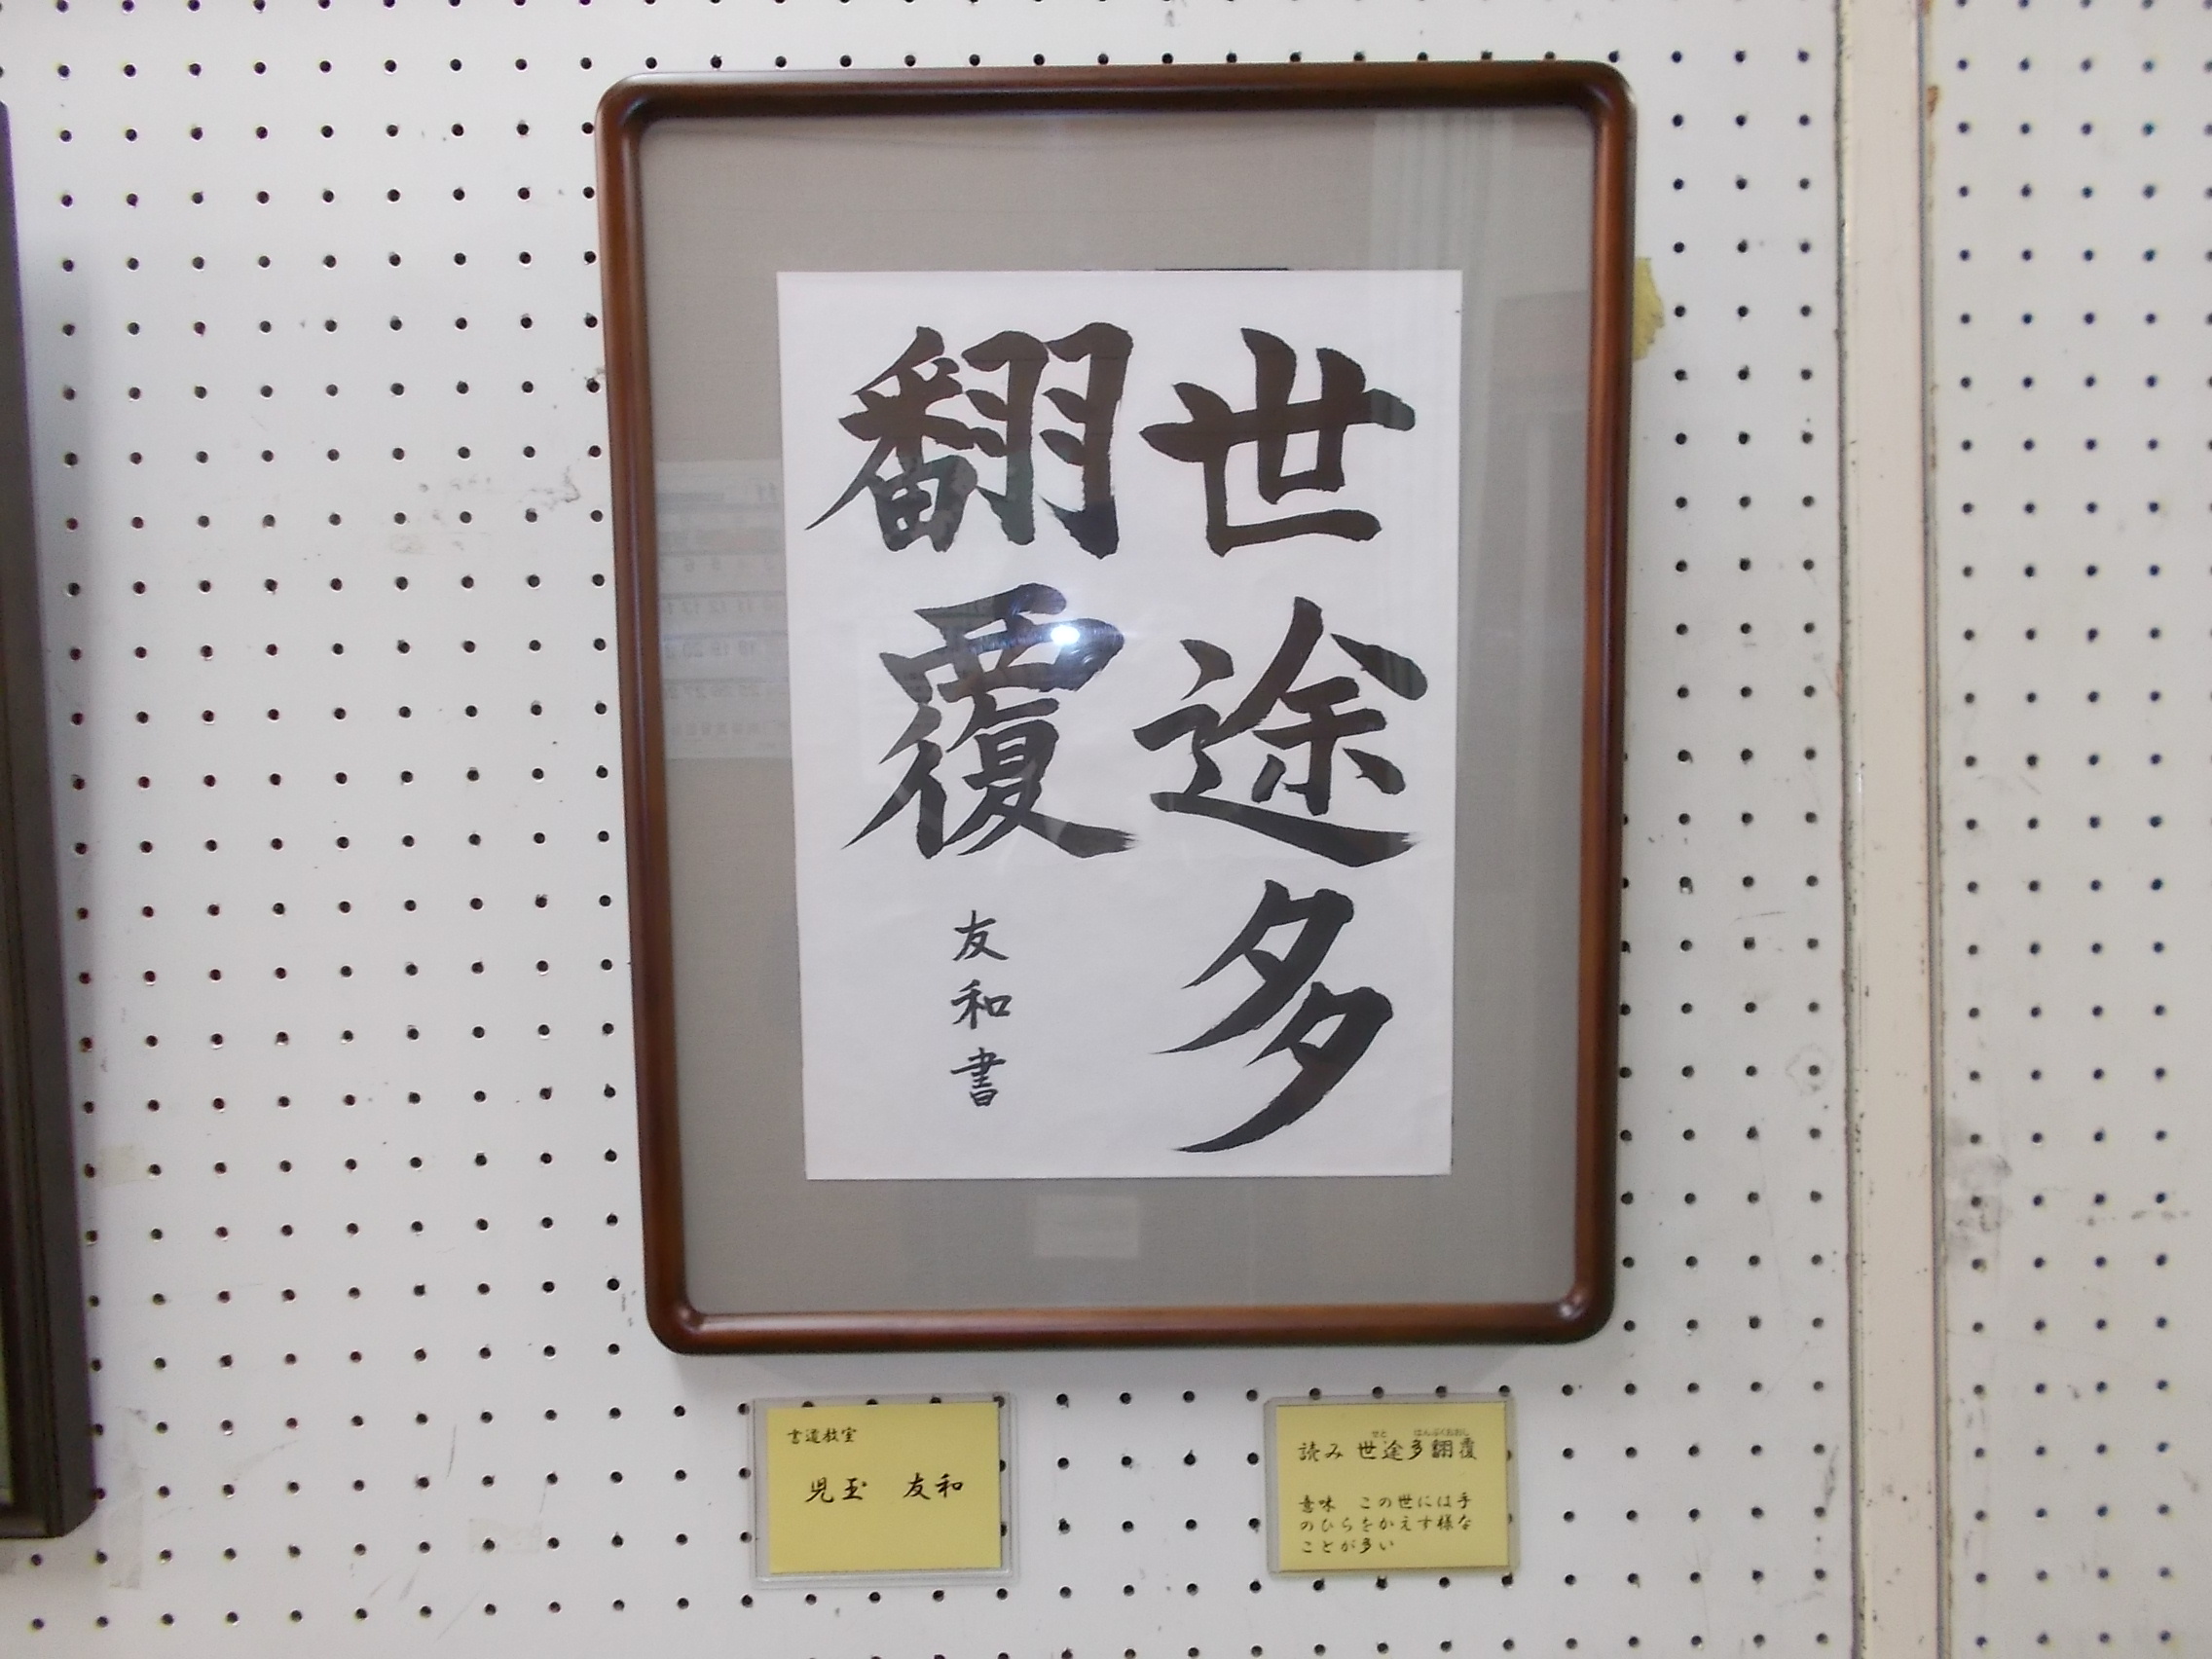 世途多
翻覆
友和書
書道教室
児玉 友和
せと はんぷくおおし
読み 世途多翻覆
意味 この世には手
のひらをかえす様な
ことが多い